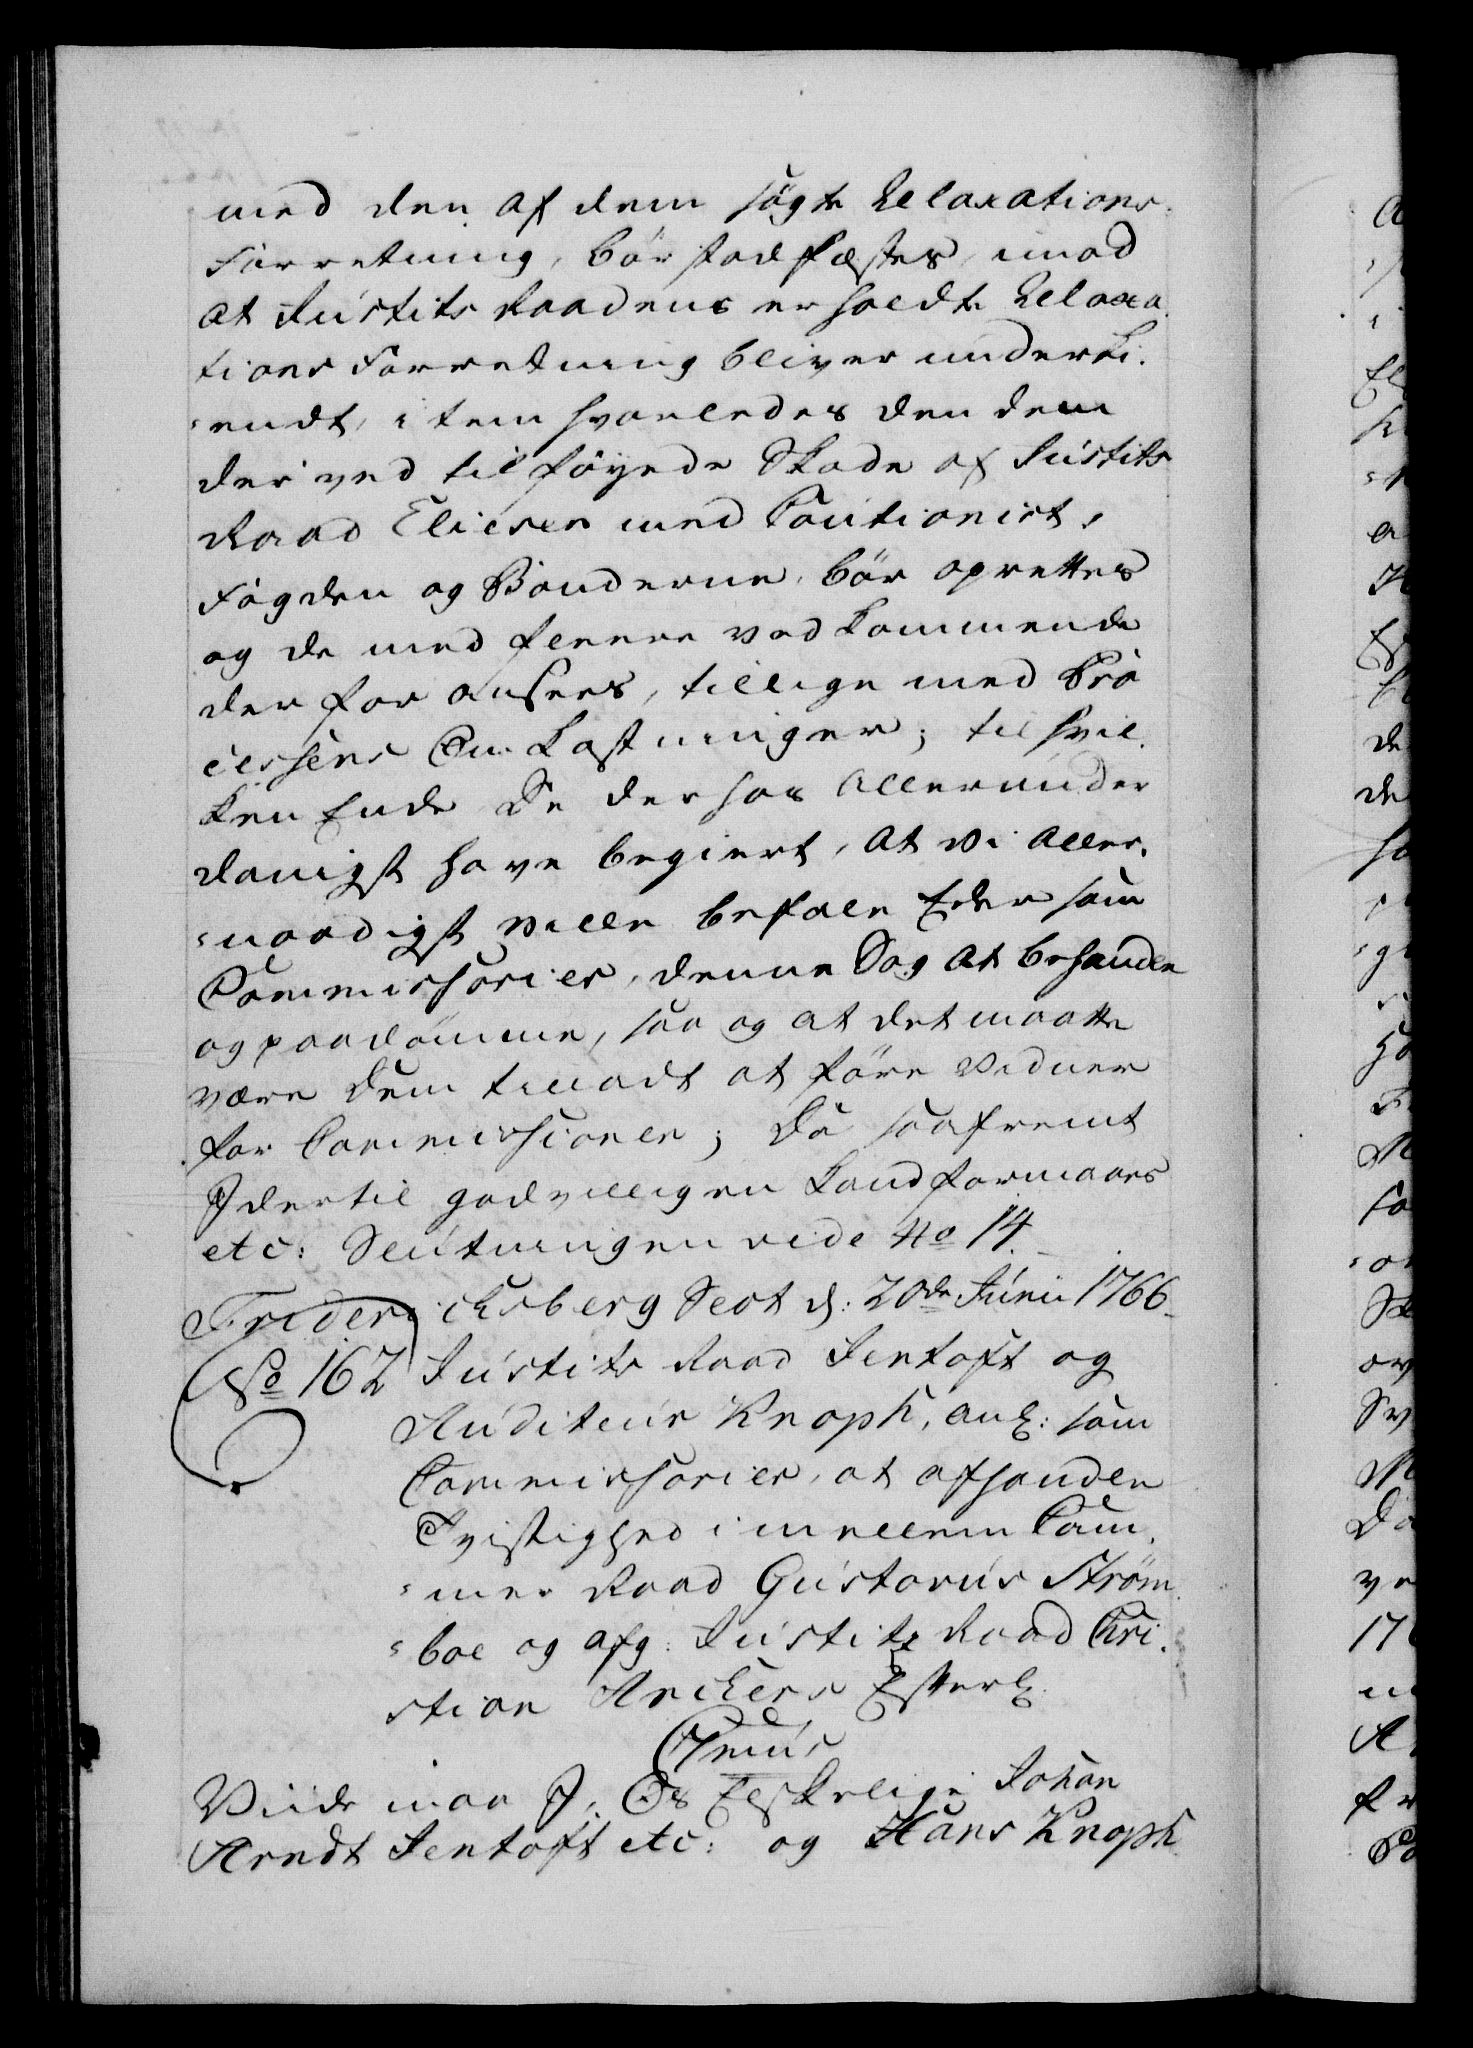 med den af dem søgte Relaxations
Forretning, bør stadfæstes, imod
at Justits Raadens erholdte Relaxa
tions Forretning bliver underki-
endt, item hvorledes den dem
der ved tilføyede Skade af Justits
Raad Eliesen med Cautionist,
Fogden og Bønderne, bør oprettes
og de med fleere vedkommende
derfor ansees, tillige med Pro
cessens Omkostninger; til hvil-
ken Ende De derhos allerunder
danigst have begiert, at vi aller-
naadigst ville befale Eder som
Commissarier, denne Sag at behandle
og paadømme, saa og at det maatte
være dem tilladt at føre Vidner
for Commissionen; Da saafremt
I dertil godvilligen Kand formaaes
etc: Slutningen vide No 14.
Friderichsberg Slot d: 20de Junii 1766
No 162 Justits Raad Jentoft og
Auditeur Knoph, anl: som
Commissarier, at afhandle
Tvistighed imellem Cam-
mer Raad Gustavus Strøm
boe og afg: Justits Raad Chri-
stian Anchers Efterl:
Gemus
Viide maa I, Os Elskelige Johan
Arndt Jentoft etc: og Hans Knoph